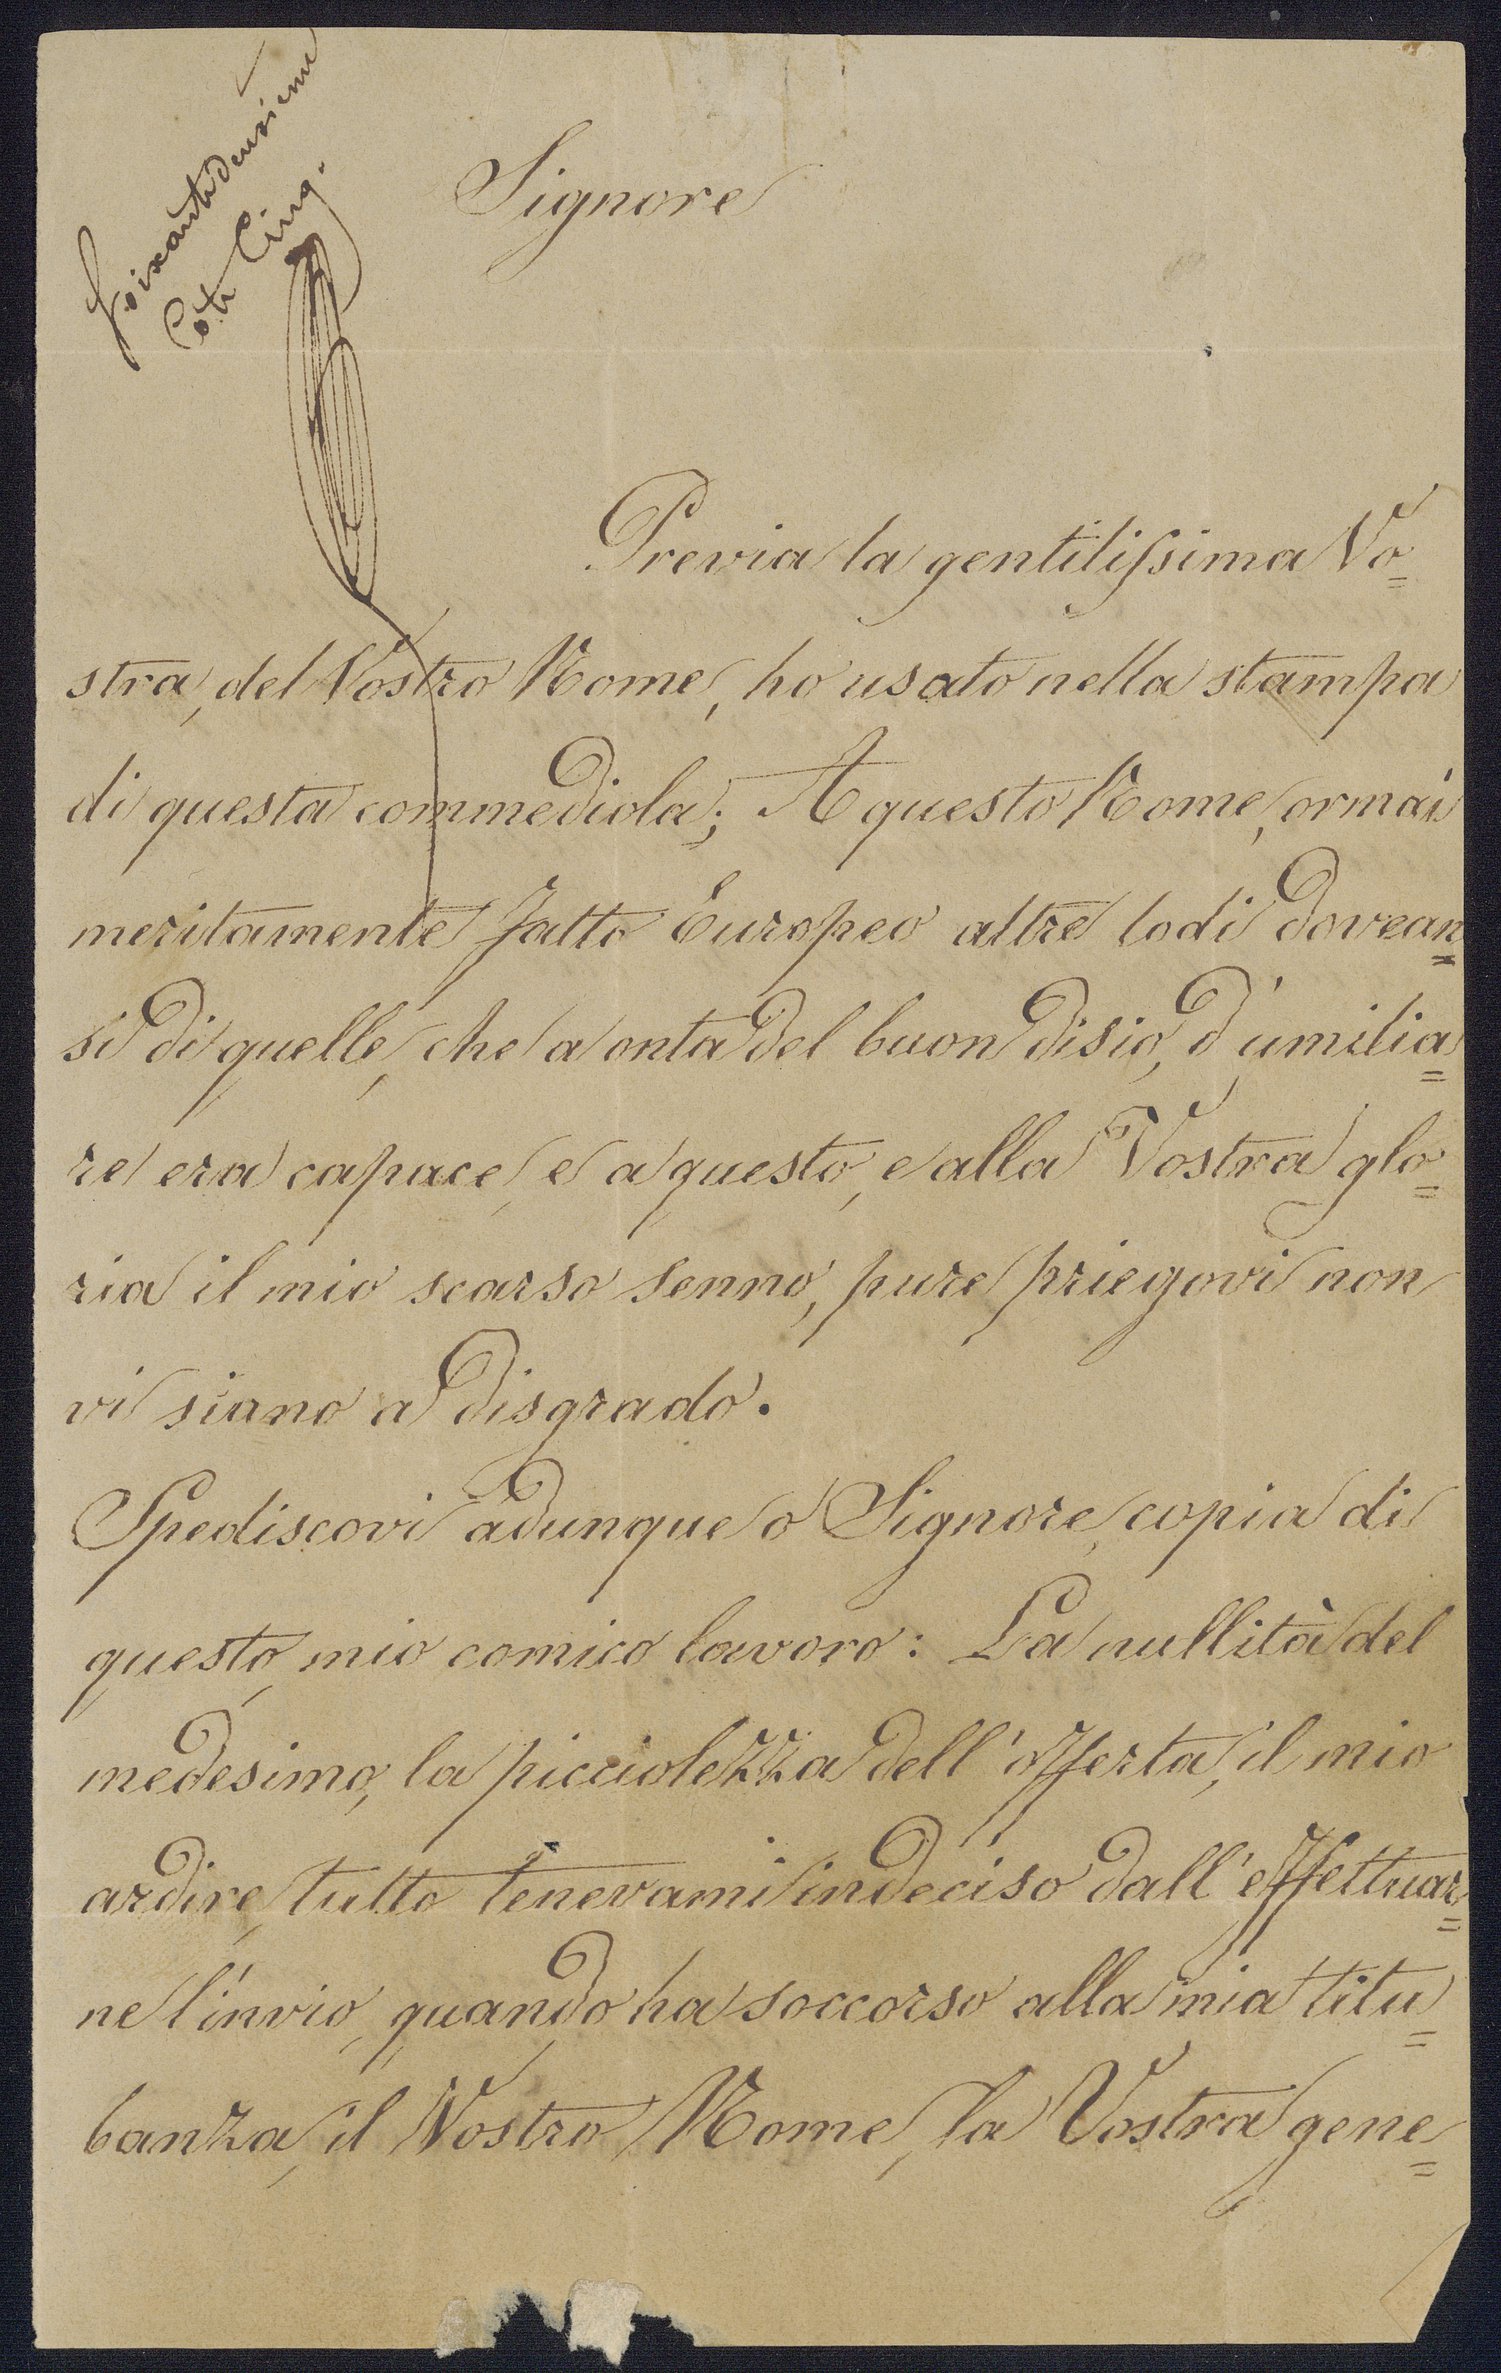 Soixante deuxieme
Cote Cinq.
Signore
Previa la gentilissima Vo=
stra, del Vostro Nome, ho usato nella stampa
di questa commediola; A questo Nome, ormai
meritamente fatto Europeo altre lodi dovean=
si di quelle, che a onta del buon disio, d'umilia=
re era capace, e a questo, e alla Vostra glo=
ria il mio scarso senno, pure priegovi non
vi siano a disgrado.
Spediscovi adunque o Signore, copia di
questo mio comico lavoro: La nullità del
medesimo, la picciolezza dell'offerta, il mio
ardire, tutto tenevami indeciso dall'effettuar=
ne l'invio, quando ha soccorso alla mia titu=
banza, il Vostro Nome, la Vostra gene=